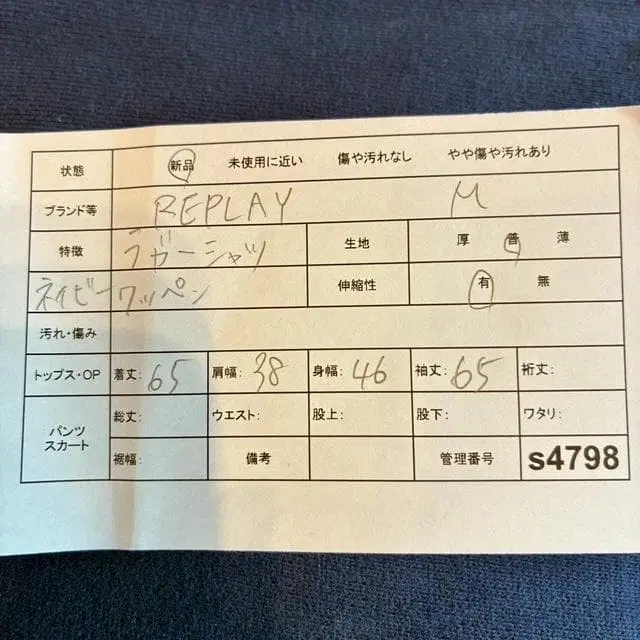 状態 新品 未使用に近い 傷や汚れなし やや傷や汚れあり
ブランド等 REPLAY M
特徴 ラガーシャツ 生地 厚 普 薄
ネイビーワッペン 伸縮性 有 無
汚れ・傷み
トップス・OP 着丈: 65 肩幅: 38 身幅: 46 袖丈: 65 裄丈:
パンツ スカート 総丈: ウエスト: 股上: 股下: ワタリ:
裾幅: 備考 管理番号 s4798